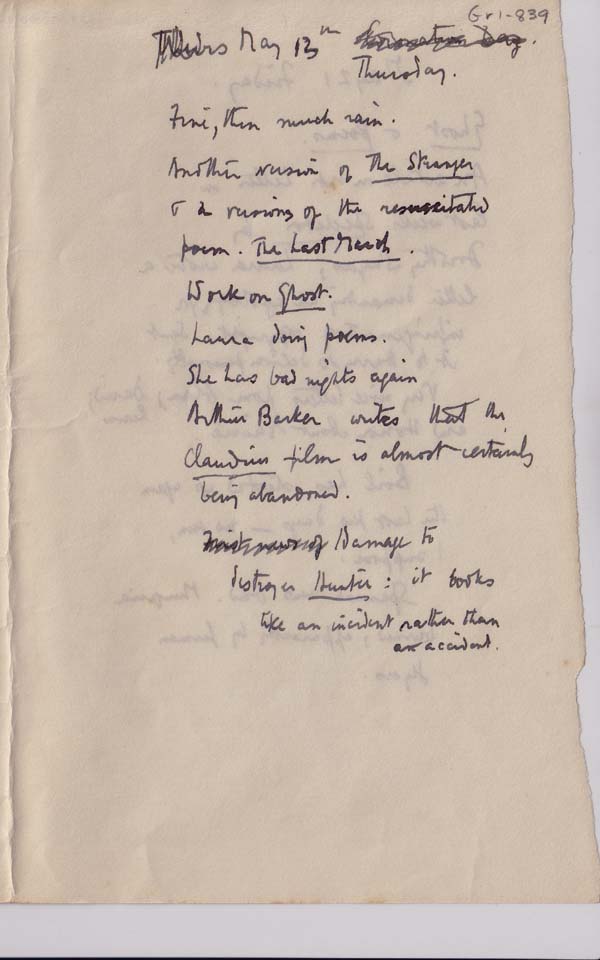 Gr1-839
Thurs May 13th Coronation Day.
Thursday.
Fine, then much rain.
Another version of The Stranger
& 2 versions of the resuscitated
poem. The Last March.
Work on Ghost.
Laura doing poems.
She has bad nights again
Arthur Barker writes that the
Claudius film is almost certainly
being abandoned.
Damage to
destroyer Hunter: it looks
like an incident rather than
an accident.